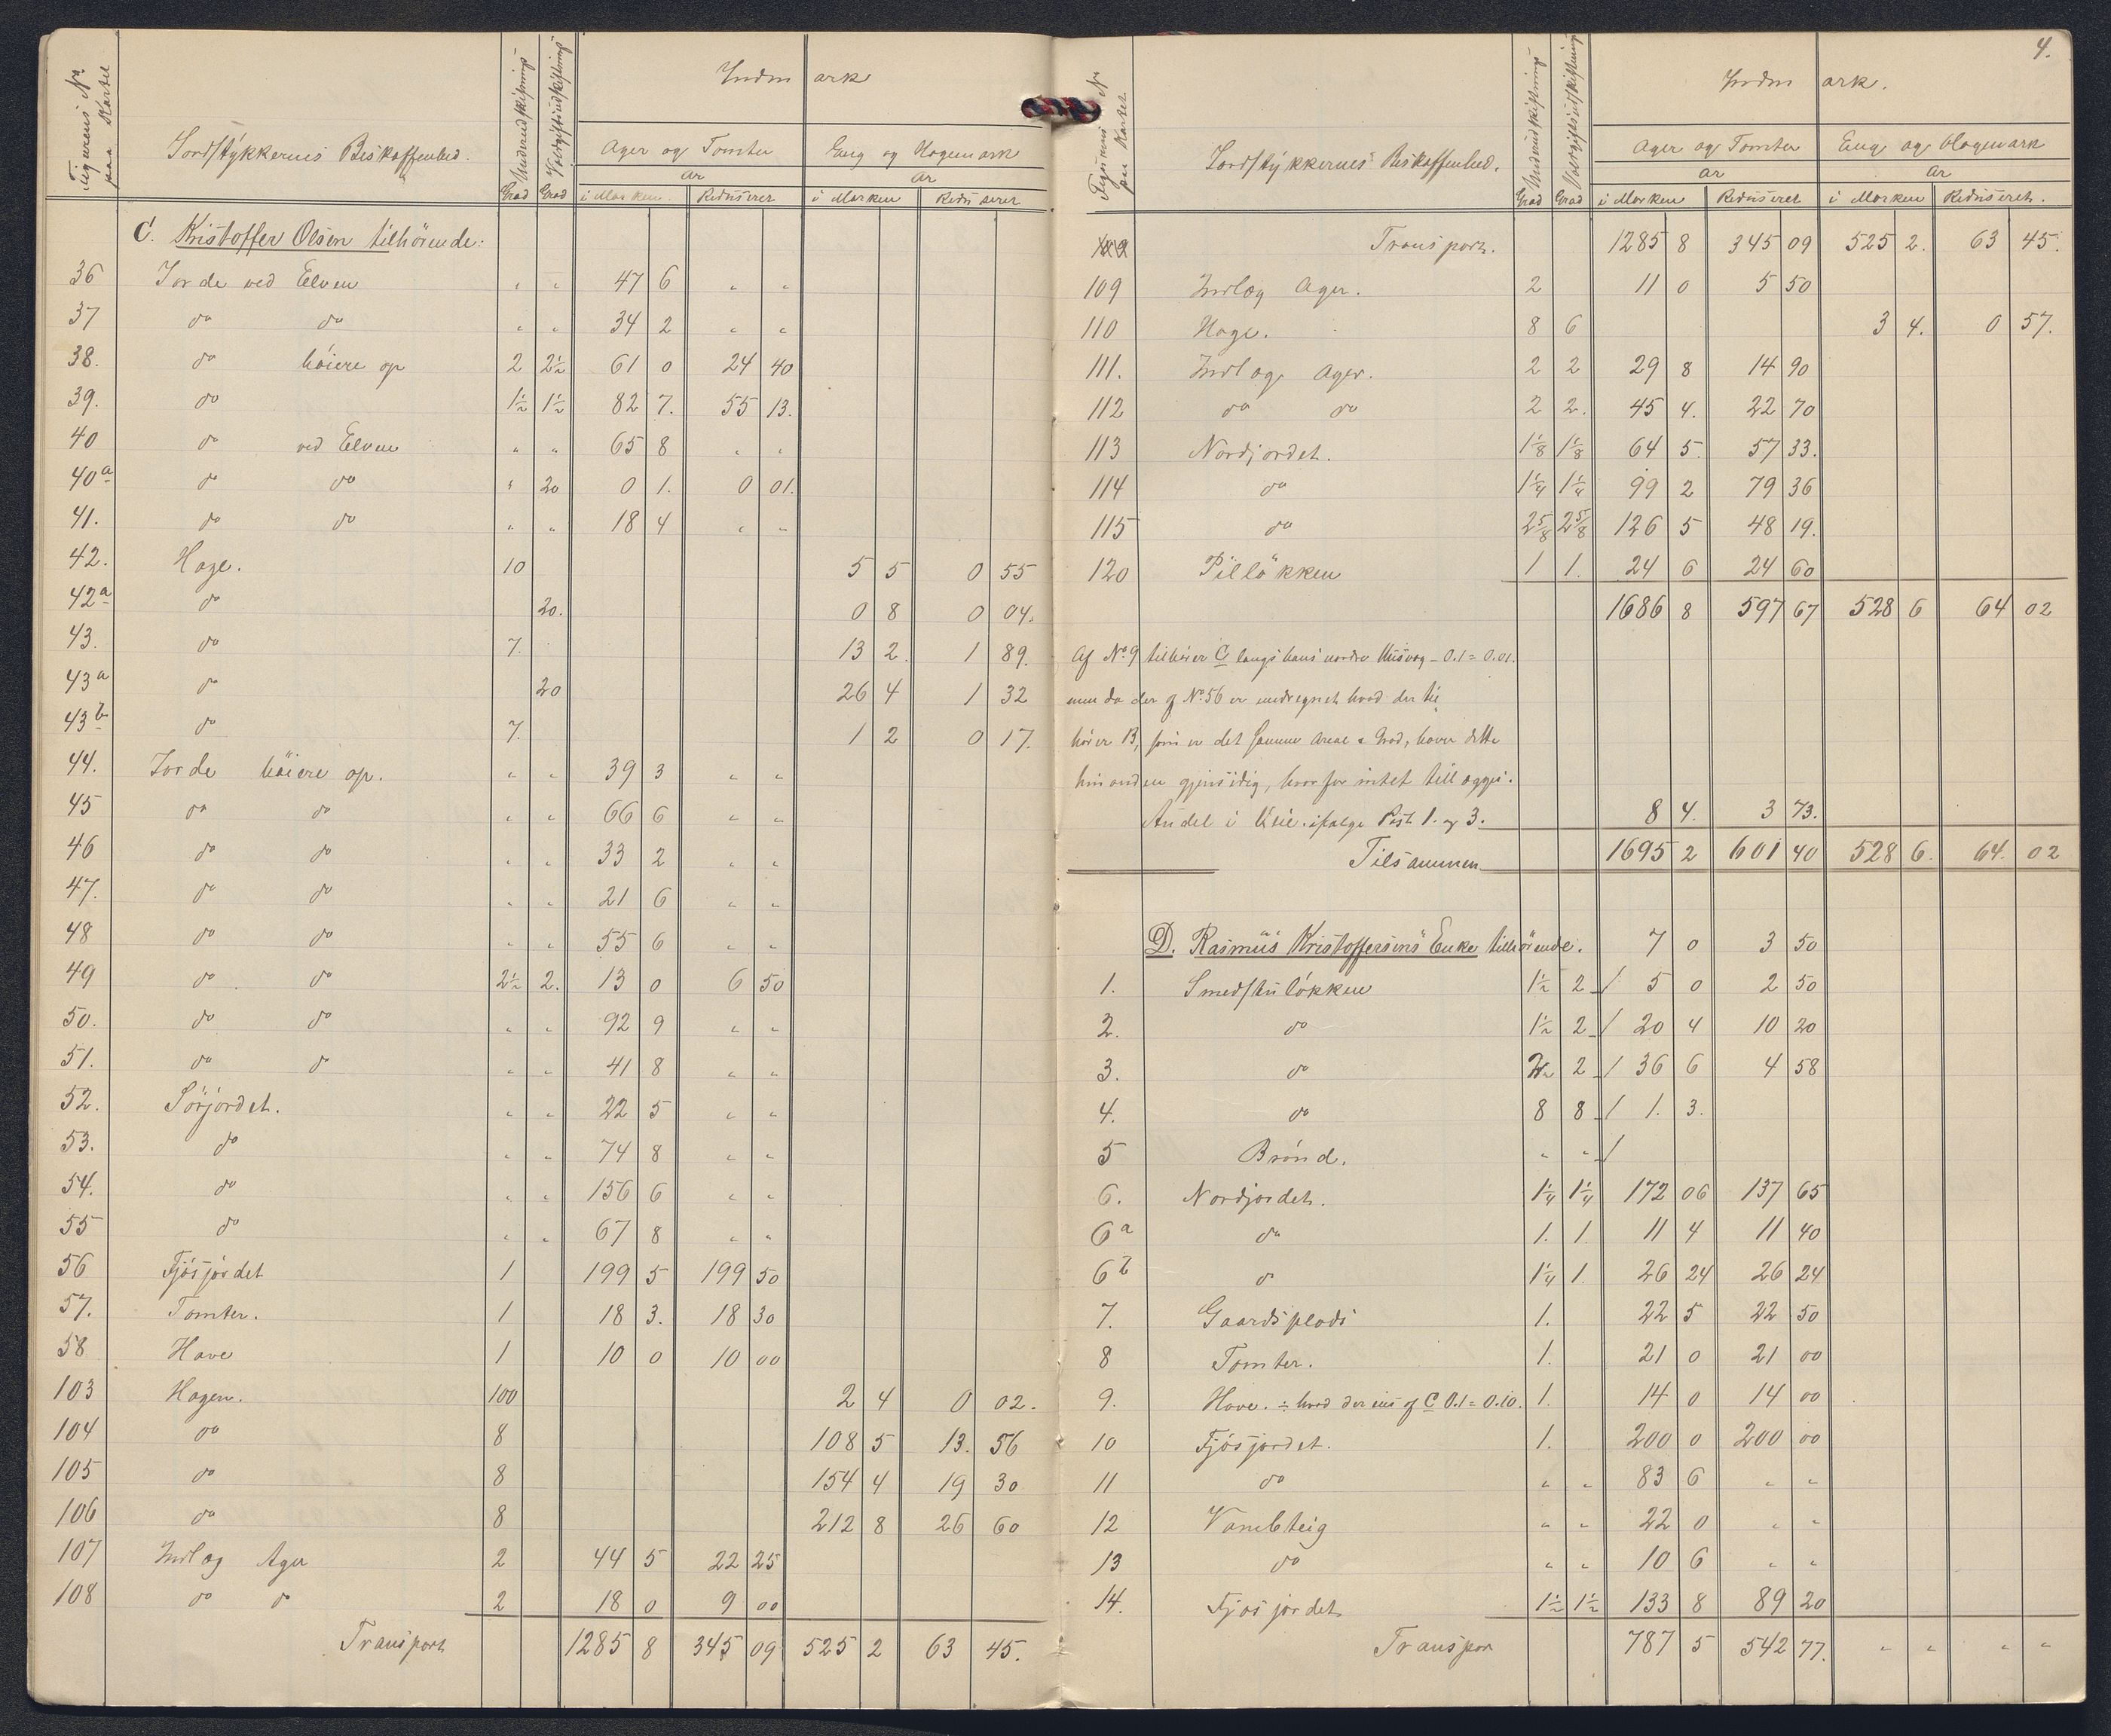 Figurens No. paa Kartet
Jordstykkernes Beskaffenhed.
Underudskiftnings Grad
Overgiftsudskiftnings Grad
Indmark
Ager og Tomter
Eng og Hagemark
Ar
Ar
i Marken. Reduseret i Marken Reduseret
C. Kristoffer Olsen tilhörende:
36 Jorde ved Elven " " 47 6 " "
37 do do " " 34 2 " "
38. do höiere op 2 2½ 61 0 24 40
39. do 1½ 1½ 82 7. 55 13.
40 do ved Elven " " 65 8 " "
40a do do " 20 0 1. 0 01.
41. do do " " 18 4 " "
42. Hage. 10 5 5 0 55
42a do 20. 0 8 0 04.
43. do 7. 13 2. 1 89.
43a do 20 26 4 1 32
43b do 7. 1 2 0 17.
44. Jorde höiere op. " " 39 3 " "
45 do do " " 66 6 " "
46 do do " " 33 2 " "
47. do do " " 21 6 " "
48 do do " " 55 6 " "
49 do do 2½ 2. 13 0 6 50
50. do do " " 92 9 " "
51. do do " " 41 8 " "
52. Sörjordet. " " 22 5 " "
53. do " " 74 8 " "
54. do " " 156 6 " "
55 do " " 67 8 " "
56 Fjösjordet 1 199 5 199 50
57. Tomter. 1 18 3. 18 30
58 Have 1 10 0 10 00
103 Hagen. 100 2 4 0 02.
104 do 8 108 5 13. 56
105 do 8 154 4 19 30
106 do 8 212 8 26 60
107 Indlag Ager 2 44 5 22 25
108 do do 2 18 0 9 00
Transport 1285 8 345 09 525 2 63 45.
4.
Figurens No paa Kartet
Jordstykkernes Beskaffenhed.
Underudskiftnings Grad
Overgiftsudskiftnings Grad
Indmark.
Ager og Tomter
Eng og Hagemark
Ar
Ar
i Marken Reduseret i Marken Reduseret.
Transport. 1285 8 345 09 525 2. 63 45.
109 Indlag Ager. 2 11 0 5 50
110 Hage. 8 6 3 4. 0 57.
111. Indlag Ager. 2 2 29 8 14 90
112 do do 2 2. 45 4. 22 70
113 Nordjordet. 1⅛ 1⅛ 64 5. 57 33.
114 do 1¼ 1¼ 99 2 79 36
115 do 2⅝ 2⅝ 126 5 48 19.
120 Pillökken 1 1. 24 6 24 60
1686 8 597 67 528 6 64 02
Af No. 9 tilhörer C langs hans nordre Husvæg - 0.1 = 0.01.
men da der af No. 56 er medregnet hvad der til
hörer B, som er det samme Areal & Grad, hæver dette
hinanden gjensidig, hvorfor intet tillægges.
Andel i Veie ifølge Post 1. og 3. 8 4. 3 73.
Tilsammen 1695 2 601 40 528 6. 64. 02
D. Rasmus Kristoffersens Enke tilhörende. 7 0 3 50
1. Smedstulökken 1½ 2 / 5 0 2 50
2. do 1½ 2 / 20 4 10 20
3. do 2 / 36 6 4 58
4. do 8 8 / 1. 3.
5 Brönd. " " /
6. Nordjordet. 1¼ 1¼ 172 06 137 65
6a do 1. 1. 11 4 11 40
6b do 1¼ 1. 26 24 26 24
7. Gaardsplads 1. 22 5 22 50
8 Tomter. 1. 21 0 21 00
9. Have. ÷ hvad der eies af C 0.1 = 0.10. 1. 14 0 14 00
10 Fjösjordet. 1. 200 0 200 00
11 do " " 83 6 " "
12 Vandteig " " 22 0 " "
13 do " " 10 6 " "
14. Fjösjordet 1½ 1½ 133 8 89 20
Transpor 787 5 542 77. " " " "